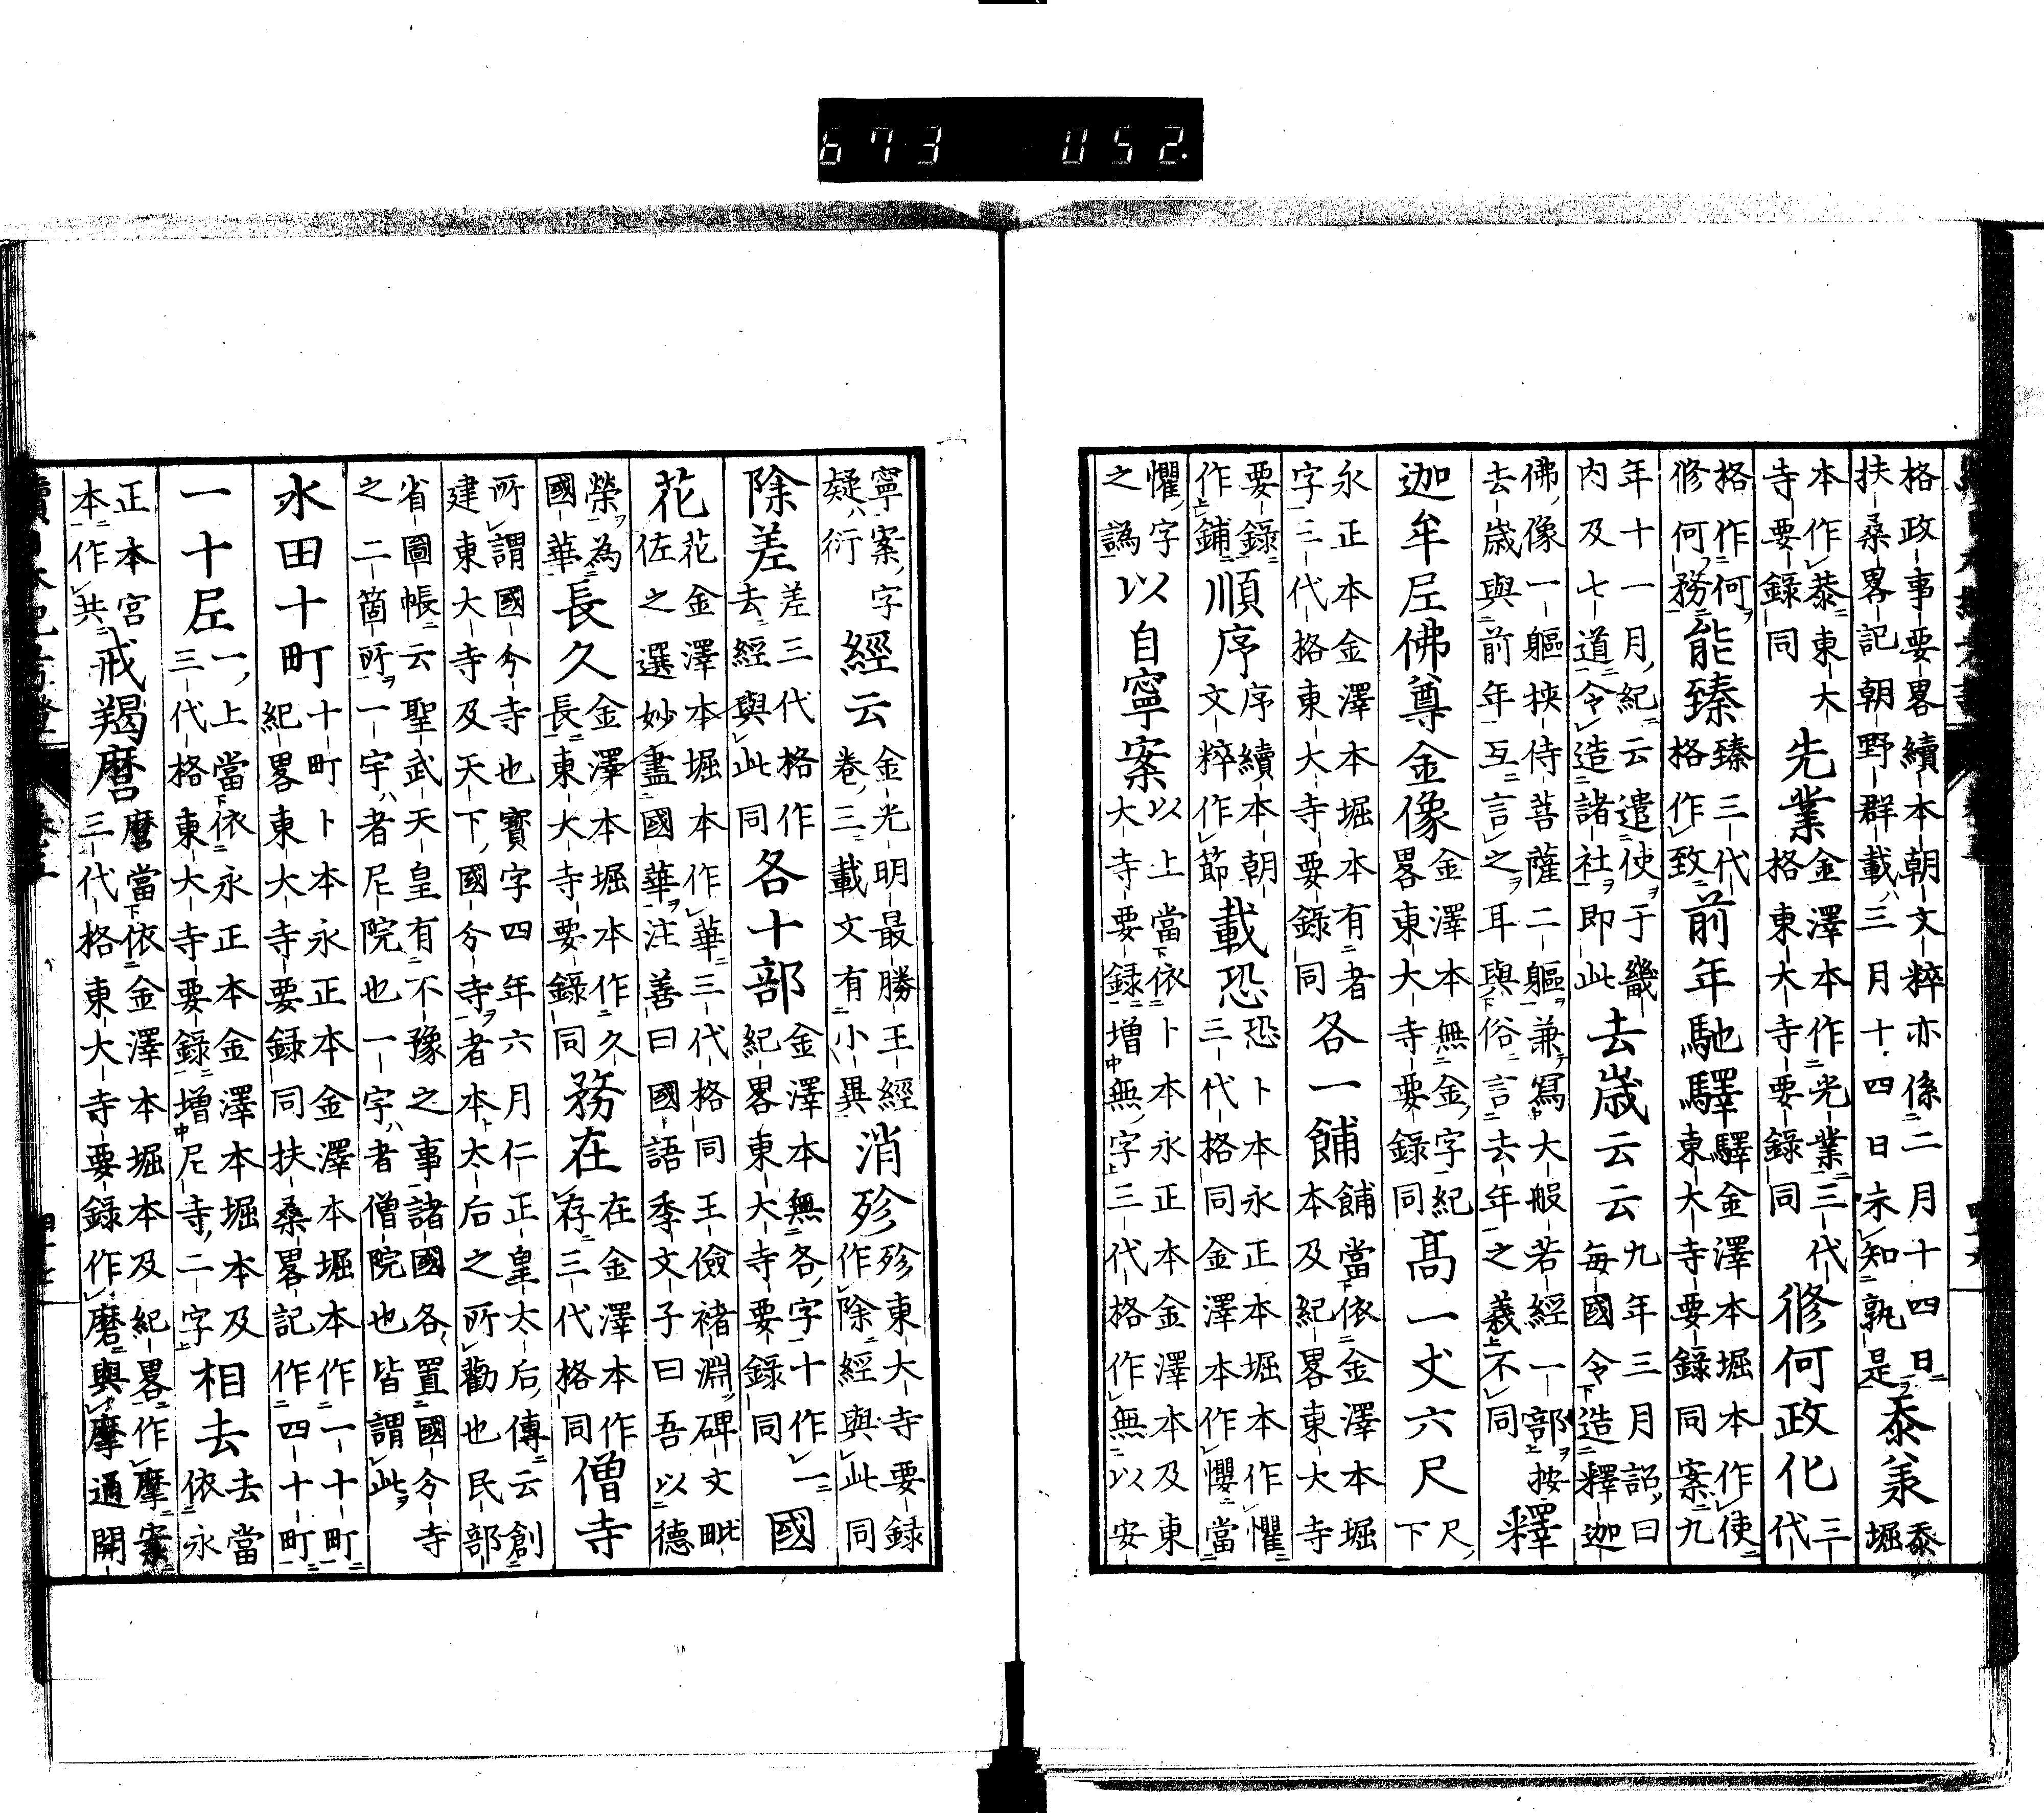 673 052.
格政事要畧續本朝文粹亦係二月十四日
扶桑畧記朝野群載三月十四日未知孰是
泰兼
泰堀
本作恭東大
寺要錄同
先業
金澤本作光業三代
格東大寺要錄同
修何政化
三
代
格作何
修何務
能臻
臻三代
格作致
前年馳驛
驛金澤本堀本作使
東大寺要錄同案九
年十一月紀云遣使于畿
内及七道令造諸社即此
去歳云云
九年三月詔曰
每國令造釋迦
佛像一軀挾侍菩薩二軀兼寫大般若經一部按
去歲與前年互言之耳與俗言去年之義不同
釋
迦牟尼佛尊金像
金澤本無金字紀
畧東大寺要錄同
高一丈六尺
尺
下
永正本金澤本堀本有者
字三代格東大寺要錄同
各一鋪
鋪當依金澤本堀
本及紀畧東大寺
要錄
作鋪
順序
序續本朝
文粹作節
載恐
恐卜本永正本堀本作懼
三代格同金澤本作懼當
懼字
之譌
以自寧案
以上當依卜本永正本金澤本及東
大寺要錄增無字三代格作無以安
寧案字
疑衍
經云
金光明最勝王經
卷三載文有小異
消殄
殄東大寺要録
作除經與此同
除差
差三代格作
去經與此同
各十部
金澤本無各字十作一
紀畧東大寺要錄同
國
花
花金澤本堀本作華三代格同王儉褚淵碑文毗
佐之選妙盡國華注善曰國語季文子曰吾以德
榮為
國華
長久
金澤本堀本作久
長東大寺要錄同
務在
在金澤本作
存三代格同
僧寺
所謂國分寺也寶字四年六月仁正皇太后傳云創
建東大寺及天下國分寺者本太后之所勸也民部
省圖帳云聖武天皇有不豫之事諸國各置國分寺
之二箇所一宇者尼院也一宇者僧院也皆謂此
水田十町
十町卜本永正本金澤本堀本作一十町
紀畧東大寺要録同扶桑畧記作四十町
一十尼
一上當依永正本金澤本堀本及
三代格東大寺要錄增尼寺二字
相去
去當
依永
正本宮
本作共
戒羯麿
麿當依金澤本堀本及紀畧作摩案
三代格東大寺要錄作磨與摩通開